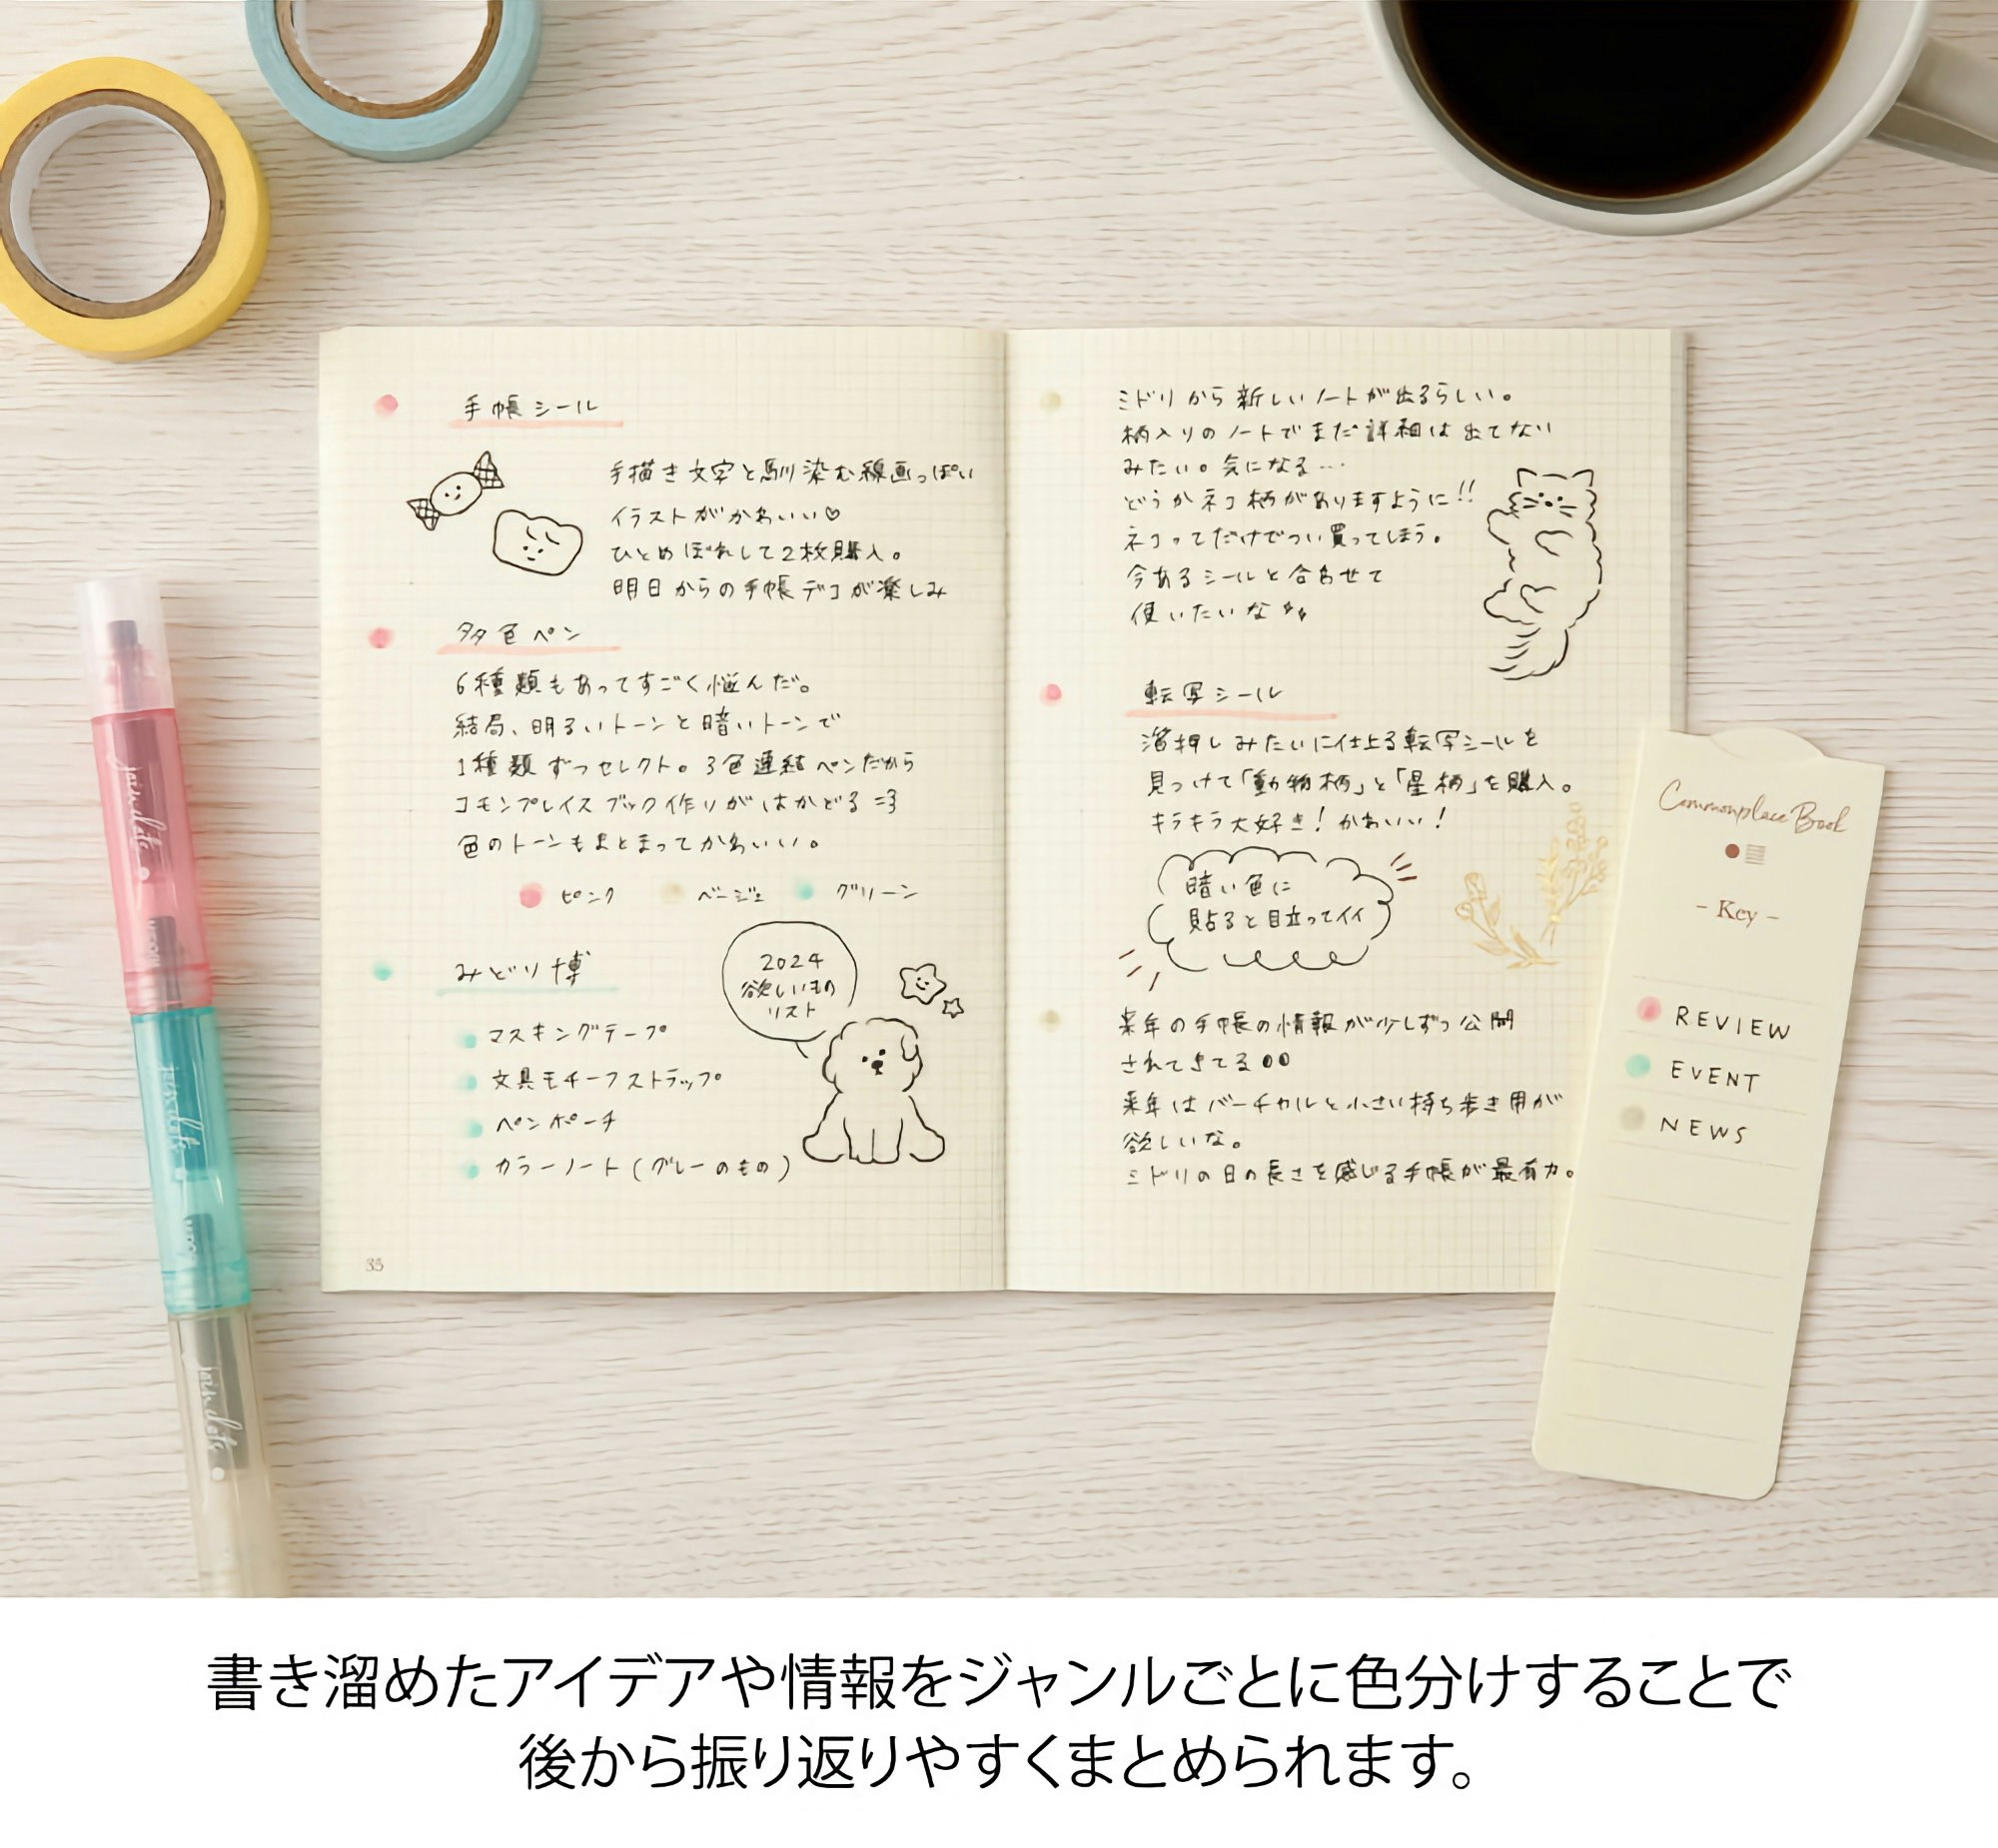 手帳シール
手描き文字と馴染む線画っぽい
イラストがかわいい♡
ひとめぼれして2枚購入。
明日からの手帳デコが楽しみ
多色ペン
6種類もあってすごく悩んだ。
結局、明るいトーンと暗いトーンで
1種類ずつセレクト。3色連結ペンだから
コモンプレイスブック作りがはかどる=3
色のトーンもまとまってかわいい。
ピンク ベージュ グリーン
みどり博
2024
欲しいもの
リスト
マスキングテープ
文具モチーフストラップ
ペンポーチ
カラーノート(グレーのもの)
35
ミドリから新しいノートが出るらしい。
柄入りのノートでまだ詳細は出てない
みたい。気になる…
どうかネコ柄がありますように!!
ネコってだけでつい買ってしまう。
今あるシールと合わせて
使いたいな
転写シール
箔押しみたいに仕上る転写シールを
見つけて「動物柄」と「星柄」を購入。
キラキラ大好き!かわいい!
暗い色に
貼ると目立ってイイ
来年の手帳の情報が少しずつ公開
されてきてる
来年はバーチカルと小さい持ち歩き用が
欲しいな。
ミドリの日の長さを感じる手帳が最有力。
Commonplace Book
- Key -
REVIEW
EVENT
NEWS
joindots
joindots
joindots
書き溜めたアイデアや情報をジャンルごとに色分けすることで
後から振り返りやすくまとめられます。